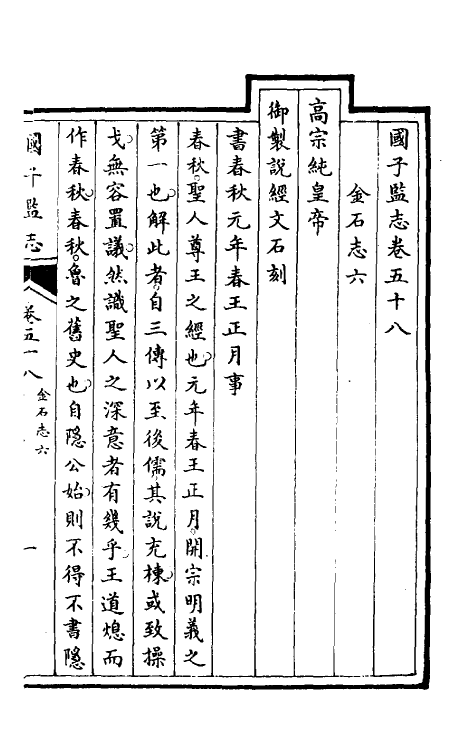 國子監志卷五十八
金石志六
高宗純皇帝
御製說經文石刻
書春秋元年春王正月事
春秋聖人尊王之經也元年春王正月開宗明義之
第一也解此者自三傳以至後儒其說充棟或致操
戈無容置議然識聖人之深意者有幾乎王道熄而
作春秋春秋魯之舊史也自隱公始則不得不書隱
國子監志
卷五十八
金石志六
一